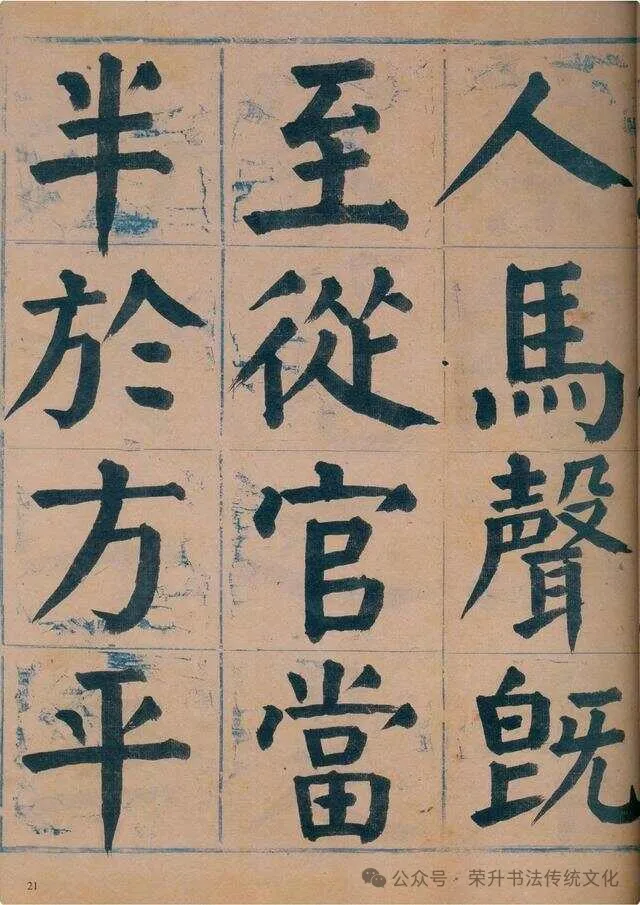 人馬聲既
至從官當
半於方平
21
公众号·荣升书法传统文化